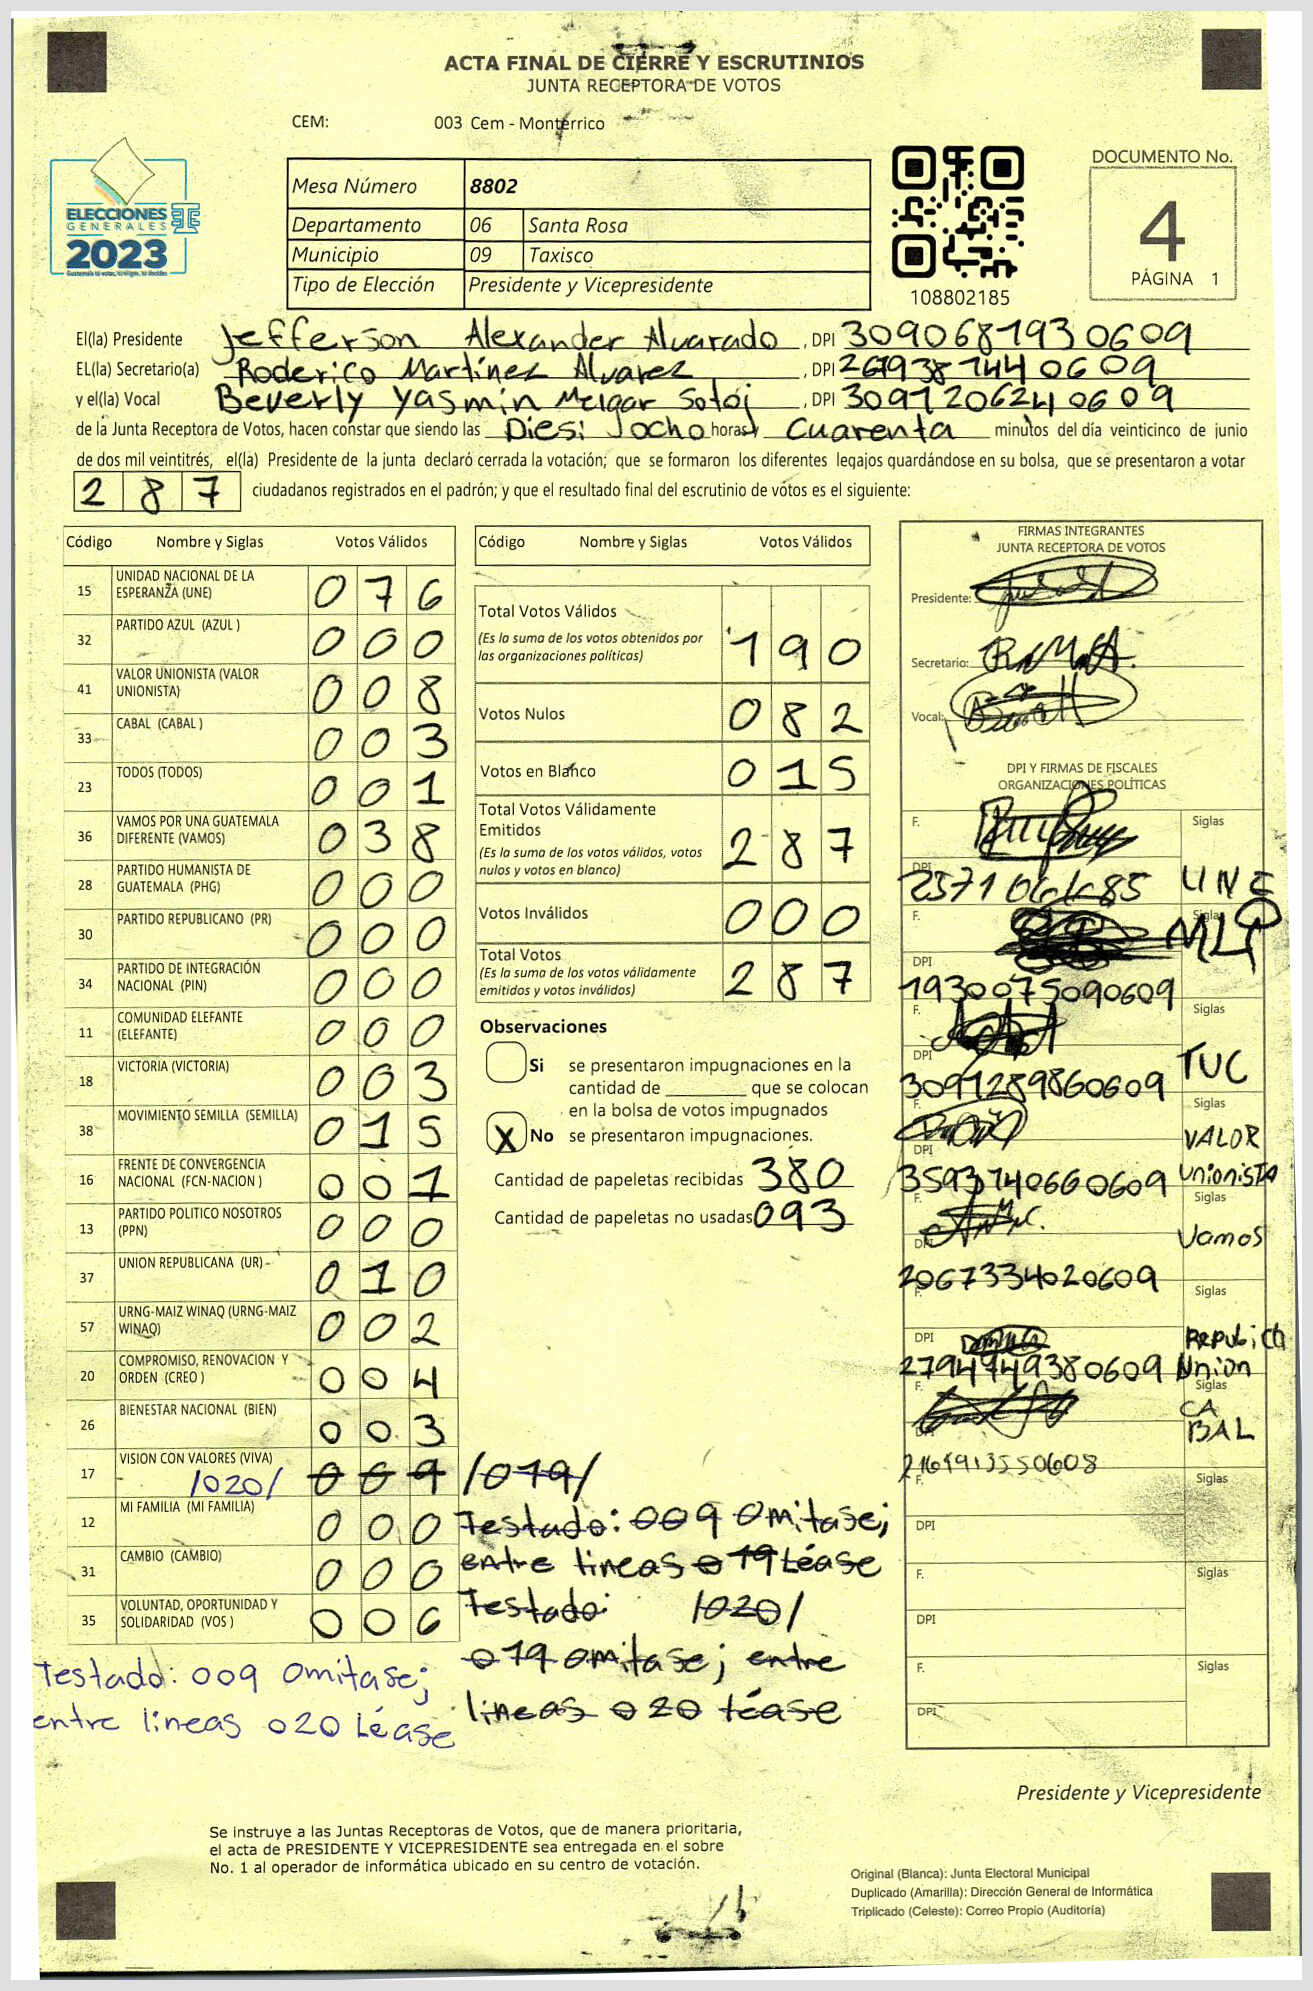 ACTA FINAL DE CIERRE Y ESCRUTINIOS
JUNTA RECEPTORA DE VOTOS
CEM: 003 Cem - Monterrico
ELECCIONES
GENERALES
2023
Mesa Número 8802
Departamento 06 Santa Rosa
Municipio 09 Taxisco
Tipo de Elección Presidente y Vicepresidente
108802185
DOCUMENTO No.
4
PÁGINA 1
El(la) Presidente Jefferson Alexander Alvarado, DPI 3090681930609
EL(la) Secretario(a) Roderico Martínez Alvarez, DPI 2619387440609
y el(la) Vocal Beverly Yasmin Melgar Sotoj, DPI 3091206240609
de la Junta Receptora de Votos, hacen constar que siendo las Diesi Jocho horas y Cuarenta minutos del día veinticinco de junio
de dos mil veintitrés, el(la) Presidente de la junta declaró cerrada la votación; que se formaron los diferentes legajos guardándose en su bolsa, que se presentaron a votar
287 ciudadanos registrados en el padrón; y que el resultado final del escrutinio de votos es el siguiente:
Código Nombre y Siglas Votos Válidos
15 UNIDAD NACIONAL DE LA ESPERANZA (UNE) 076
32 PARTIDO AZUL (AZUL ) 000
41 VALOR UNIONISTA (VALOR UNIONISTA) 008
33 CABAL (CABAL ) 003
23 TODOS (TODOS) 001
36 VAMOS POR UNA GUATEMALA DIFERENTE (VAMOS) 038
28 PARTIDO HUMANISTA DE GUATEMALA (PHG) 000
30 PARTIDO REPUBLICANO (PR) 000
34 PARTIDO DE INTEGRACIÓN NACIONAL (PIN) 000
11 COMUNIDAD ELEFANTE (ELEFANTE) 000
18 VICTORIA (VICTORIA) 003
38 MOVIMIENTO SEMILLA (SEMILLA) 015
16 FRENTE DE CONVERGENCIA NACIONAL (FCN-NACION ) 001
13 PARTIDO POLITICO NOSOTROS (PPN) 000
37 UNION REPUBLICANA (UR) 010
57 URNG-MAIZ WINAQ (URNG-MAIZ WINAQ) 002
20 COMPROMISO, RENOVACION Y ORDEN (CREO ) 004
26 BIENESTAR NACIONAL (BIEN) 003
17 VISION CON VALORES (VIVA) /020/ 009 /019/
12 MI FAMILIA (MI FAMILIA) 000
31 CAMBIO (CAMBIO) 000
35 VOLUNTAD, OPORTUNIDAD Y SOLIDARIDAD (VOS ) 006
Testado: 009 Omitase;
entre lineas 020 Léase
Código Nombre y Siglas Votos Válidos
Total Votos Válidos 190
(Es la suma de los votos obtenidos por
las organizaciones políticas)
Votos Nulos 082
Votos en Blanco 015
Total Votos Válidamente
Emitidos 287
(Es la suma de los votos válidos, votos
nulos y votos en blanco)
Votos Inválidos 000
Total Votos 287
(Es la suma de los votos válidamente
emitidos y votos inválidos)
Observaciones
Si se presentaron impugnaciones en la
cantidad de ________ que se colocan
en la bolsa de votos impugnados
X No se presentaron impugnaciones.
Cantidad de papeletas recibidas 380
Cantidad de papeletas no usadas 093
Testado: 009 Omitase;
entre lineas 019 Léase
Testado: /020/
019 omitase; entre
lineas 020 léase
FIRMAS INTEGRANTES
JUNTA RECEPTORA DE VOTOS
Presidente:
Secretario:
Vocal:
DPI Y FIRMAS DE FISCALES
ORGANIZACIONES POLÍTICAS
F. Siglas
DPI UNE
F. Siglas
DPI 1930075090609
F. Siglas
DPI 3091289860609 TUC
F. Siglas
DPI 3593740660609 VALOR Unionista
F. Siglas
DPI 2067334020609 Vamos
F. Siglas
DPI 2794949380609 Union
F. Siglas
CABAL
F. Siglas
DPI
F. Siglas
DPI
F. Siglas
DPI
Presidente y Vicepresidente
Se instruye a las Juntas Receptoras de Votos, que de manera prioritaria,
el acta de PRESIDENTE Y VICEPRESIDENTE sea entregada en el sobre
No. 1 al operador de informática ubicado en su centro de votación.
Original (Blanca): Junta Electoral Municipal
Duplicado (Amarilla): Dirección General de Informática
Triplicado (Celeste): Correo Propio (Auditoría)